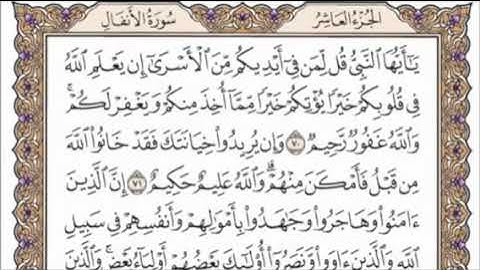 الجزء العاشر سورة الأنفال
يَٰٓأَيُّهَا ٱلنَّبِيُّ قُل لِّمَن فِىٓ أَيْدِيكُم مِّنَ ٱلْأَسْرَىٰٓ إِن يَعْلَمِ ٱللَّهُ
فِى قُلُوبِكُمْ خَيْرًا يُؤْتِكُمْ خَيْرًا مِّمَّآ أُخِذَ مِنكُمْ وَيَغْفِرْ لَكُمْ ۗ
وَٱللَّهُ غَفُورٌ رَّحِيمٌ ٧٠ وَإِن يُرِيدُوا۟ خِيَانَتَكَ فَقَدْ خَانُوا۟ ٱللَّهَ
مِن قَبْلُ فَأَمْكَنَ مِنْهُمْ ۗ وَٱللَّهُ عَلِيمٌ حَكِيمٌ ٧١ إِنَّ ٱلَّذِينَ
ءَامَنُوا۟ وَهَاجَرُوا۟ وَجَٰهَدُوا۟ بِأَمْوَٰلِهِمْ وَأَنفُسِهِمْ فِى سَبِيلِ
ٱللَّهِ وَٱلَّذِينَ ءَاوَوا۟ وَّنَصَرُوٓا۟ أُو۟لَٰٓئِكَ بَعْضُهُمْ أَوْلِيَآءُ بَعْضٍ ۚ وَٱلَّذِينَ